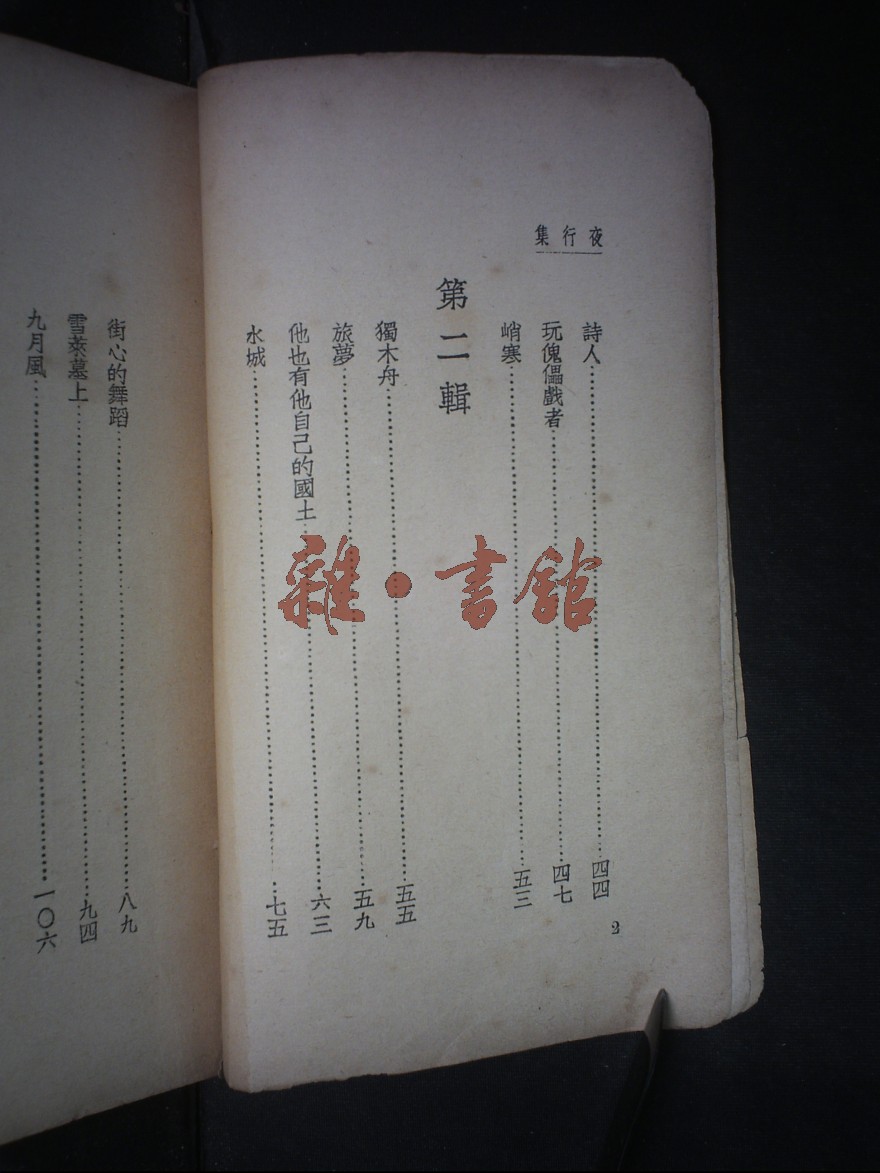 夜行集
詩人……四四
玩傀儡戲者……四七
峭寒……五三
第二輯
獨木舟……五五
旅夢……五九
他也有他自己的國土……六三
水城……七五
2
街心的舞蹈……八九
雪萊墓上……九四
九月風……一〇六
雜·書館